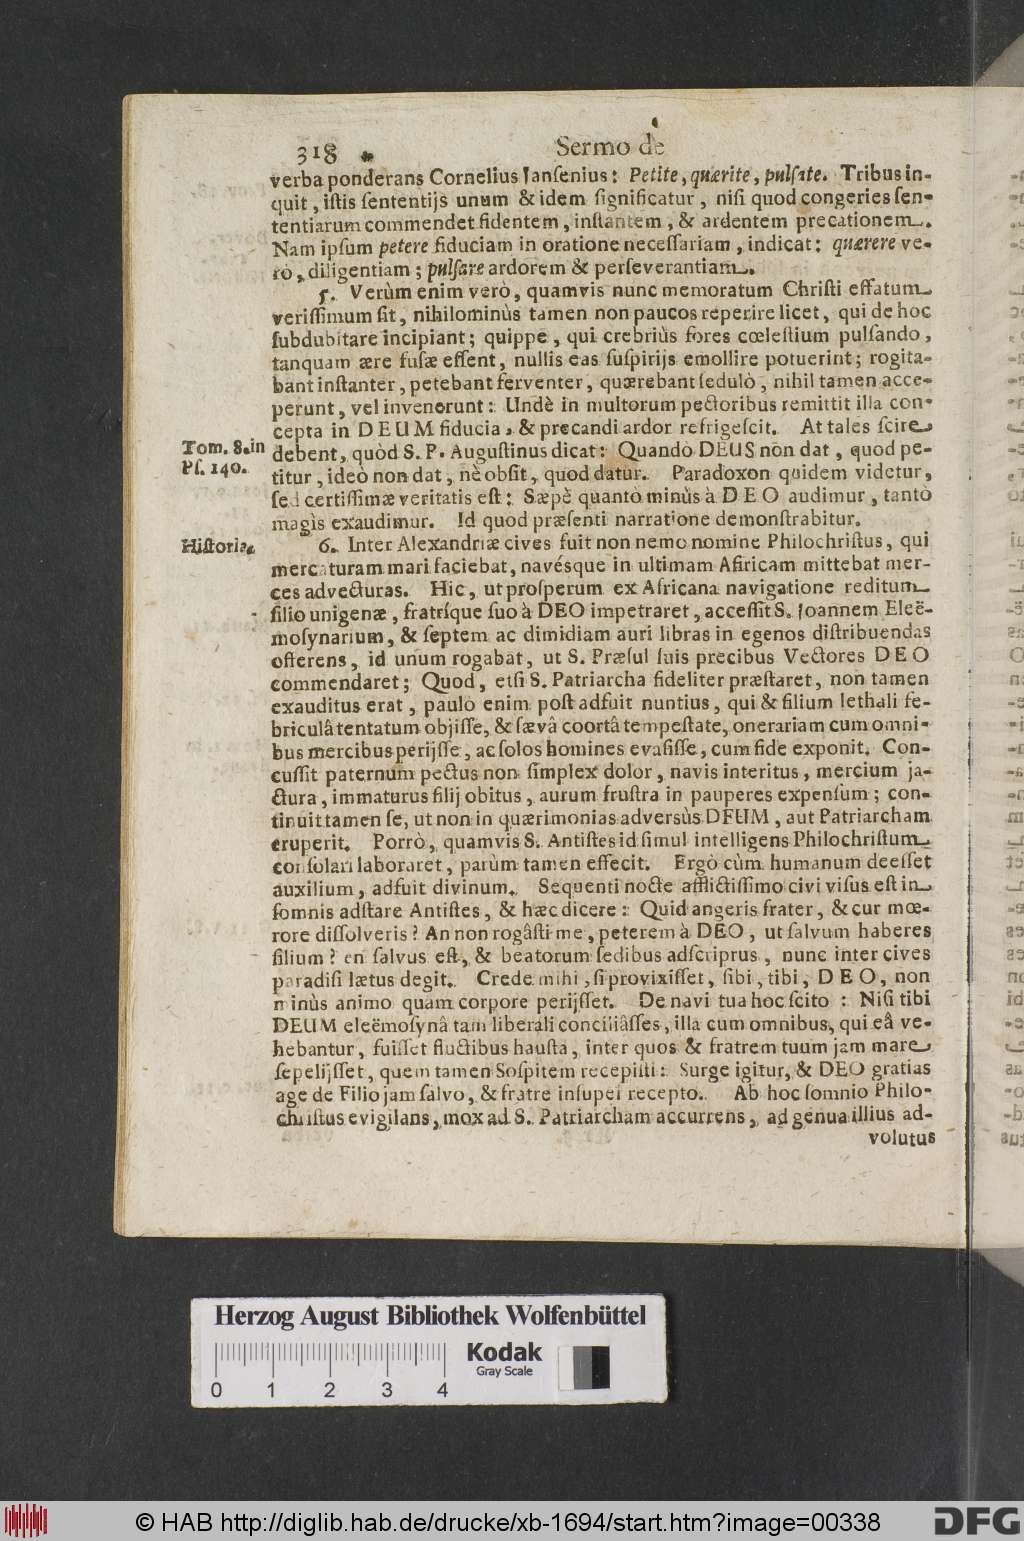 318 Sermo de
verba ponderans Cornelius Jansenius: Petite, quærite, pulsate. Tribus in-
quit, istis sententijs unum & idem significatur, nisi quod congeries sen-
tentiarum commendet fidentem, instantem, & ardentem precationem.
Nam ipsum petere fiduciam in oratione necessariam, indicat: quærere ve-
rò, diligentiam; pulsare ardorem & perseverantiam.
5. Verùm enim verò, quamvis nunc memoratum Christi effatum
verissimum sit, nihilominùs tamen non paucos reperire licet, qui de hoc
subdubitare incipiant; quippe, qui crebriùs fores cœlestium pulsando,
tanquam ære fusæ essent, nullis eas suspirijs emollire potuerint; rogita-
bant instanter, petebant ferventer, quærebant sedulò, nihil tamen acce-
perunt, vel invenerunt: Undè in multorum pectoribus remittit illa con-
cepta in DEUM fiducia, & precandi ardor refrigescit. At tales scire
Tom. 8. in
Ps. 140.
debent, quòd S. P. Augustinus dicat: Quandò DEUS non dat, quod pe-
titur, ideò non dat, nè obsit, quod datur. Paradoxon quidem videtur,
sed certissimæ veritatis est: Sæpè quantò minùs à DEO audimur, tantò
magìs exaudimur. Id quod præsenti narratione demonstrabitur.
Historia.
6. Inter Alexandriæ cives fuit non nemo nomine Philochristus, qui
mercaturam mari faciebat, navésque in ultimam Africam mittebat mer-
ces advecturas. Hic, ut prosperum ex Africana navigatione reditum
filio unigenæ, fratrísque suo à DEO impetraret, accessit S. Joannem Eleë-
mosynarium, & septem ac dimidiam auri libras in egenos distribuendas
offerens, id unum rogabat, ut S. Præsul suis precibus Vectores DEO
commendaret; Quod, etsi S. Patriarcha fideliter præstaret, non tamen
exauditus erat, paulò enim post adfuit nuntius, qui & filium lethali fe-
briculâ tentatum objisse, & sævâ coortâ tempestate, onerariam cum omni-
bus mercibus perijsse, ac solos homines evasisse, cum fide exponit. Con-
cussit paternum pectus non simplex dolor, navis interitus, mercium ja-
ctura, immaturus filij obitus, aurum frustra in pauperes expensum; con-
tinuit tamen se, ut non in quærimonias adversùs DEUM, aut Patriarcham
eruperit. Porrò, quamvis S. Antistes id simul intelligens Philochristum
consolari laboraret, parùm tamen effecit. Ergò cùm humanum deesset
auxilium, adfuit divinum. Sequenti nocte afflictissimo civi visus est in
somnis adstare Antistes, & hæc dicere: Quid angeris frater, & cur mœ-
rore dissolveris? An non rogâsti me, peterem à DEO, ut salvum haberes
filium? en salvus est, & beatorum sedibus adscriptus, nunc inter cives
paradisi lætus degit. Crede mihi, si provixisset, sibi, tibi, DEO, non
minùs animo quàm corpore perijsset. De navi tua hoc scito: Nisi tibi
DEUM eleëmosynâ tam liberali conciliâsses, illa cum omnibus, qui eâ ve-
hebantur, fuisset fluctibus hausta, inter quos & fratrem tuum jam mare
sepelijsset, quem tamen Sospitem recepisti: Surge igitur, & DEO gratias
age de Filio jam salvo, & fratre insuper recepto. Ab hoc somnio Philo-
christus evigilans, mox ad S. Patriarcham accurrens, ad genua illius ad-
volutus
Herzog August Bibliothek Wolfenbüttel
Kodak
Gray Scale
0 1 2 3 4
© HAB http://diglib.hab.de/drucke/xb-1694/start.htm?image=00338
DFG